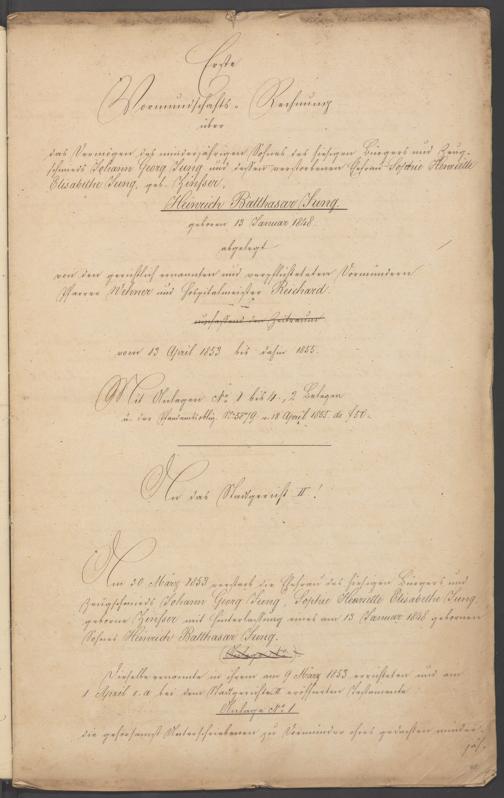 Erste
Vormundschafts-Rechnung
über
das Vermögen des minderjährigen Sohnes des hiesigen Bürgers und Zeug-
schmieds Johann Georg Jung und dessen verstorbenen Ehefrau Sophie Henriette
Elisabethe Jung, geb. Zinsser,
Heinrich Balthasar Jung.
geboren 13 Januar 1848.
abgelegt
von den gerichtlich ernannten und verpflichteten Vormündern
Pfarrer Wehner und Hospitalmeister Reichard.
umfassend den Zeitraum
vom 13 April 1853 bis dahin 1855.
Mit Anlagen No 1 bis 4, 2 Belegen
u. der No 5879 v. 18 April 1855 de f 50.
An das Stadtgericht II!
Am 20 März 1853 verstarb die Ehefrau des hiesigen Bürgers und
Zeugschmieds Johann Georg Jung, Sophie Henriette Elisabethe Jung
geborne Zinsser mit Hinterlassung eines am 13 Januar 1848 gebornen
Sohnes Heinrich Balthasar Jung.
Dieselbe ernannte in ihrem am 9 März 1853 errichteten und am
1 April e. a. bei dem Stadtgerichte II eröffneten Testamente
Anlage No 1
die gehorsamst Unterschriebenen zu Vormünder ihres gedachten minder-
jäh-